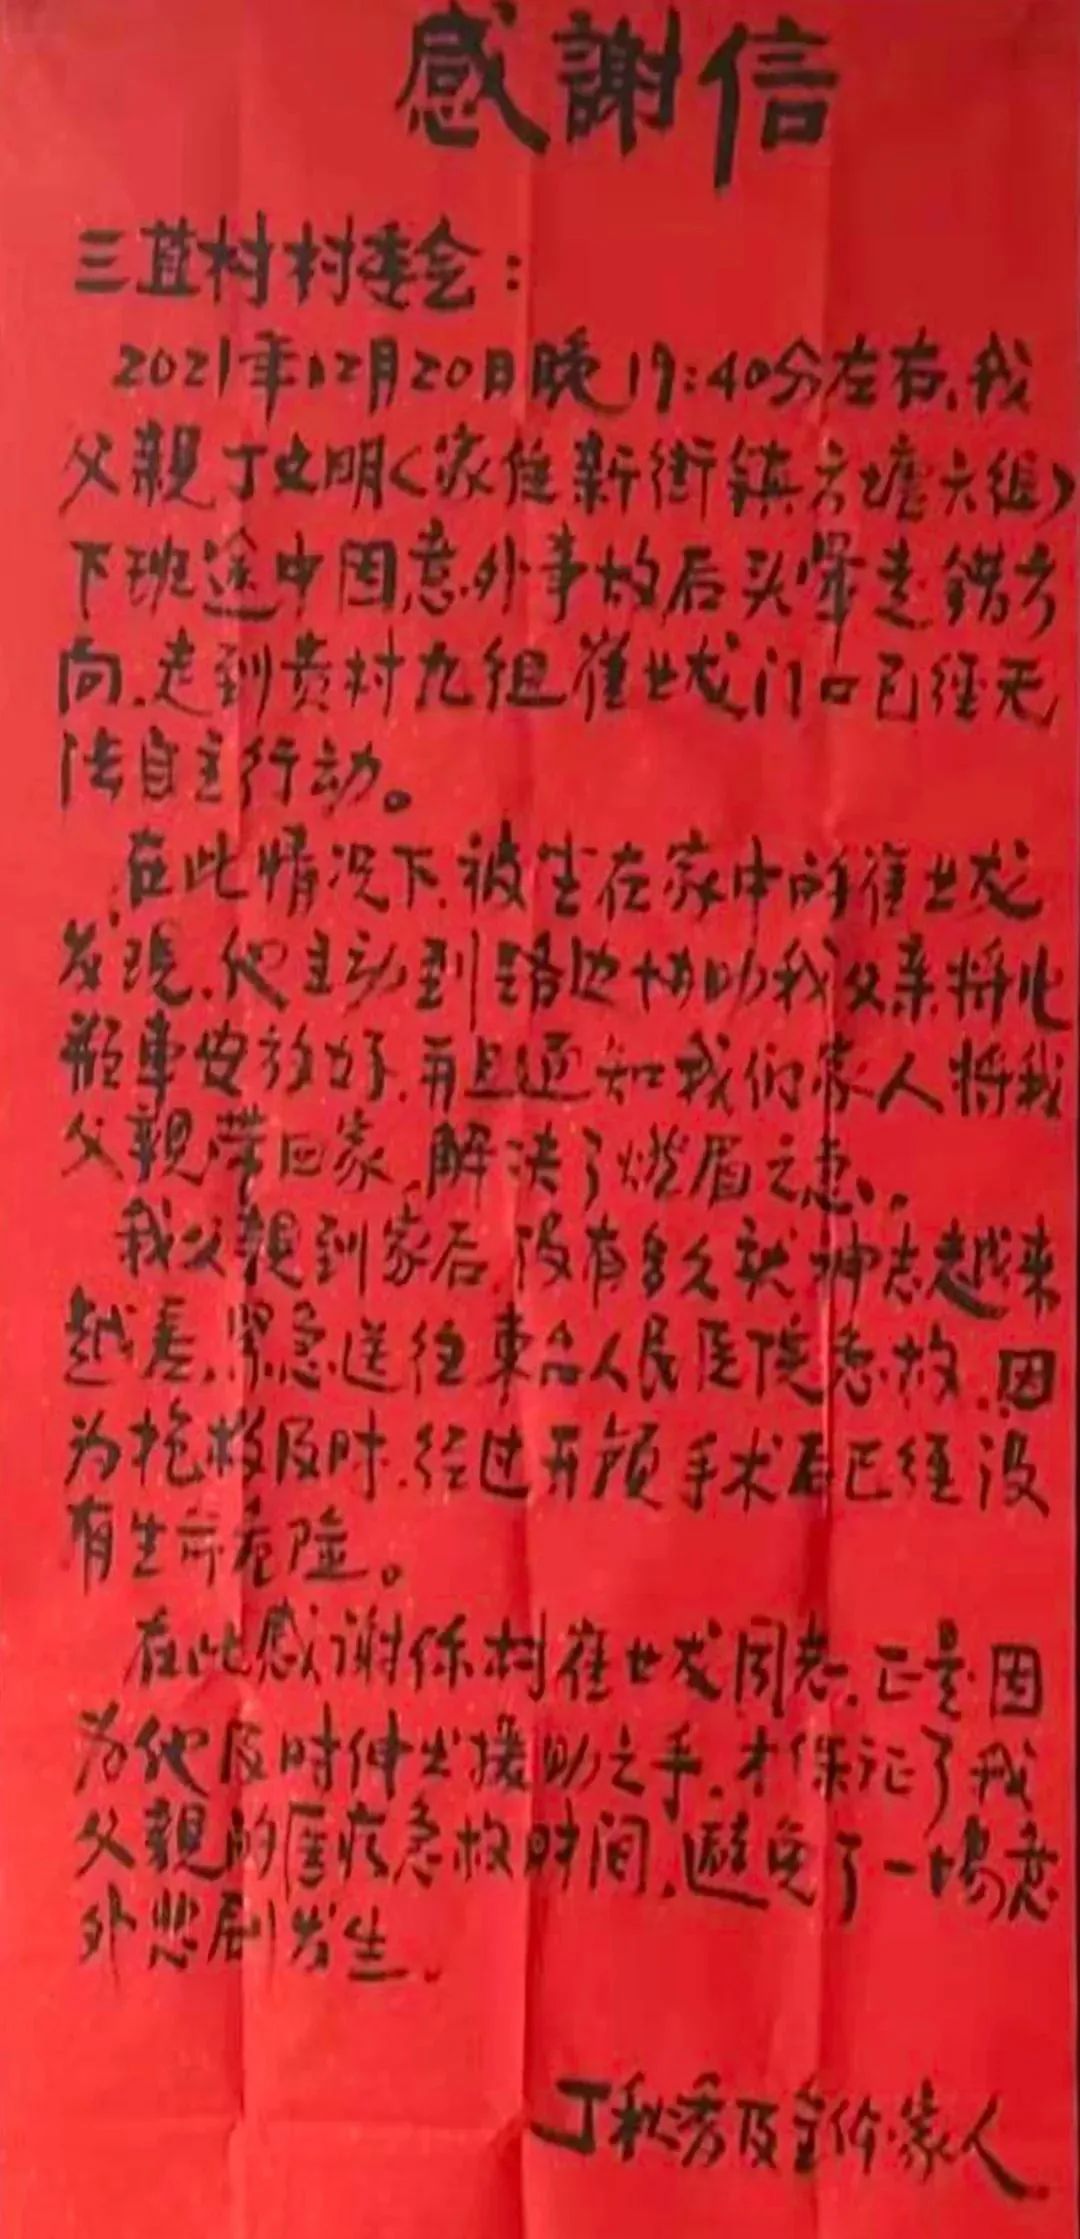 感謝信
三苴村村委会：
2021年12月20日晚17:40分左右,我
父親丁文明<家住新街镇方塘六组>
下班途中因意外事故后头晕走錯方
向.走到贵村九组崔世龙门口已经无
法自主行动。
在此情况下.被坐在家中的崔世龙
发現.他主动到路边协助我父亲将电
瓶車安放好.并且通知我们家人将我
父親带回家.解决了燃眉之急.
我父親到家后.没有多久就神志越来
越差.紧急送往東台人民医院急救.因
为抢救及时.经过开颅手术后已经没
有生命危险。
在此感謝你村崔世龙同志.正是因
为他及时伸出援助之手.才保证了我
父親的医疗急救时间.避免了一場意
外悲剧发生.
丁秋秀及全体家人